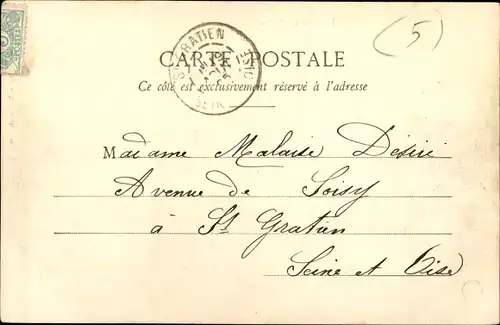 (5)
CARTE POSTALE
Ce côté est exclusivement réservé à l'adresse
Madame Malaise Désiré
Avenue de Soisy
à St Gratien
Seine et Oise